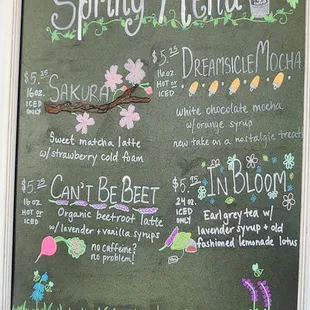 Spring Menu
$5.25
16oz.
ICED
ONLY
SAKURA
Sweet matcha latte
w/strawberry cold foam
$5.25
16oz.
HOT or
ICED
DREAMSICLE MOCHA
white chocolate mocha
w/orange syrup
new take on a nostalgic treat!
$5.25
16oz
HOT or
ICED
CAN'T BE BEET
Organic beetroot latte
w/lavender + vanilla syrups
no caffeine?
no problem!
24oz
ICED
ONLY
IN BLOOM
Earl grey tea w/
lavender syrup + old
fashioned lemonade lotus